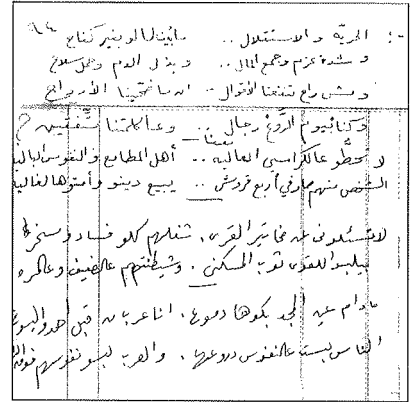 ٩٤
-: الحريّة والاستقلال .. ما بينالا لو بغير كفاح
وشدة عزم وجمع المال .. وبذل الدم وحمل سلاح
ومش راح تنفعنا الأقوال .. ان ما ضحّينا الأرواح
وكنا بيوم الروّع رجال .. وعا كلمتنا متّفقين
لا تحطّو عالكراسي العاليه .. أهل المطامع والنفوس الباليه
الشخص منهم صار في أربع قروش .. يبيع دينو وأمتو هالغاليه
لا تسئلوني عن مخاتير القرى . شغلهم كلو فساد ومسخره
بيلبسوا للقوي ثوب المسكني . وشيطنتهم عالضعيف وعالمره
ما دام عين المجد بكوها دموع .
الناس لبست عالنفوس دروعها . والعرب لبسو نفوسهم فوق